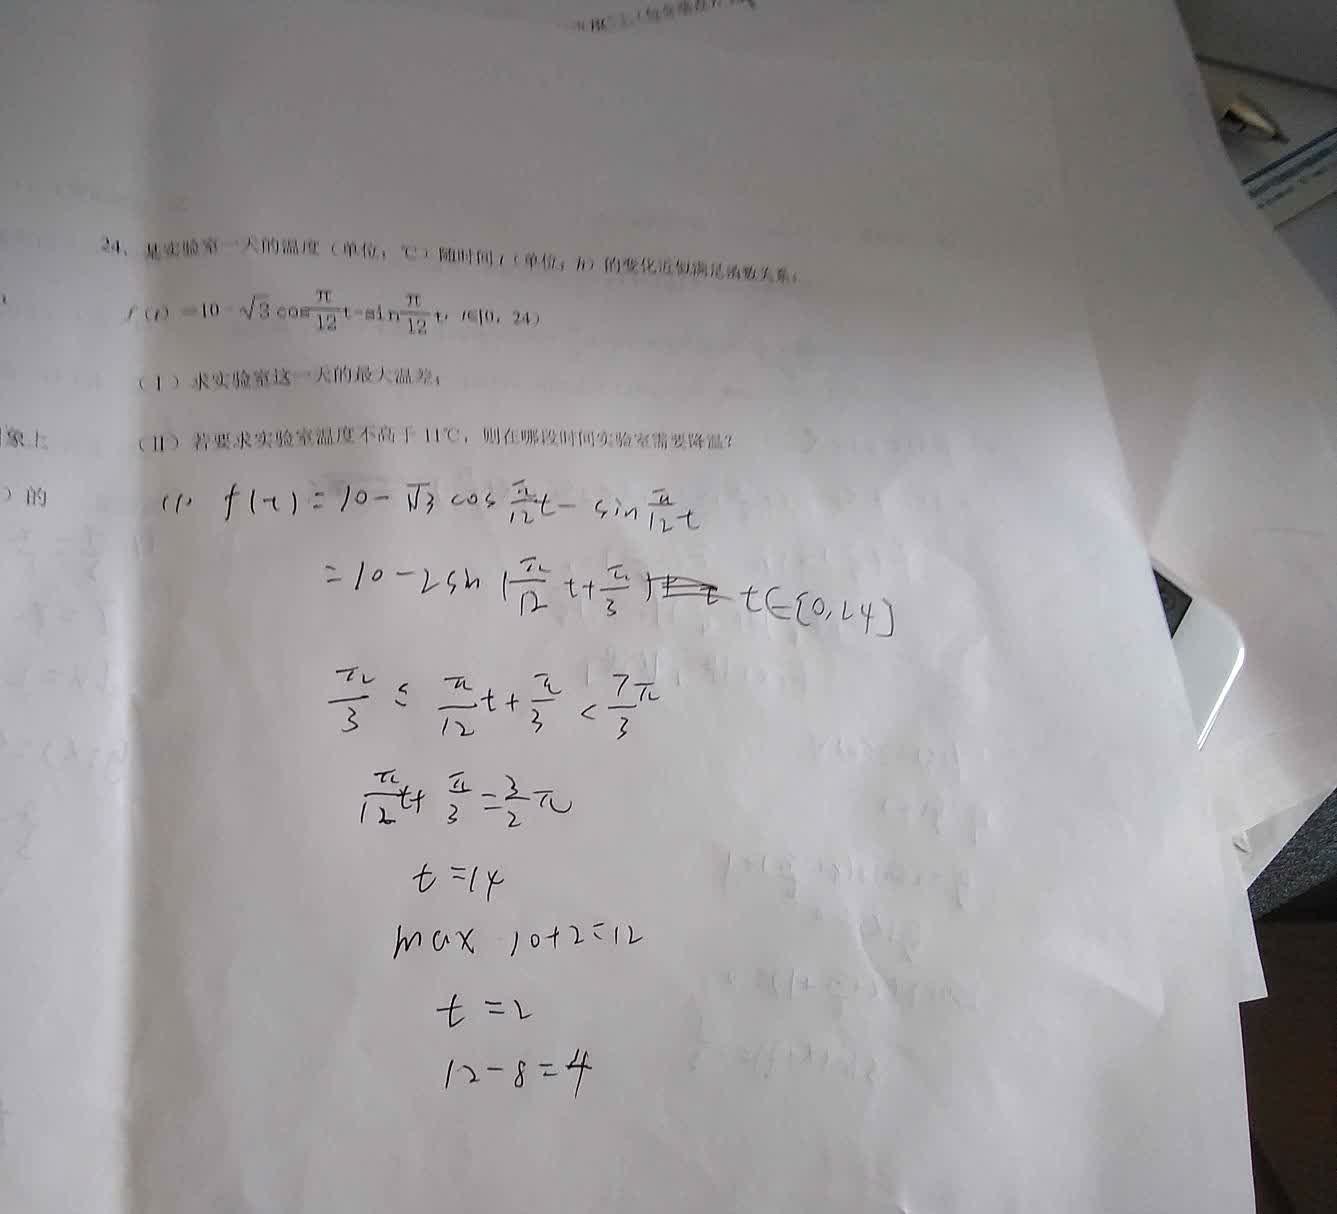 24、某实验室一天的温度（单位：℃）随时间t（单位：h）的变化近似满足函数关系：
f（t）=10-√3cosπ/12t-sinπ/12t，t∈[0，24）
（Ⅰ）求实验室这一天的最大温差；
象上
（Ⅱ）若要求实验室温度不高于11℃，则在哪段时间实验室需要降温？
）的
(1) f(t)=10-√3cosπ/12t-sinπ/12t
=10-2sin(π/12t+π/3) t∈[0,24]
π/3≤π/12t+π/3<7π/3
π/12t+π/3=3/2π
t=14
max 10+2=12
t=2
12-8=4